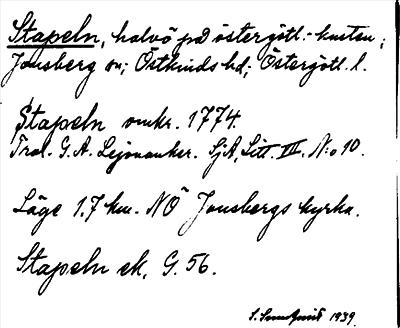 Stapeln, halvö på östergötl.-kusten;
Jonsberg sn; Östkinds hd; Östergötl. l.
Stapeln omkr. 1774.
Trol. G. A. Lejonanker. SjA, Litt. III. N:o 10.
Läge 1.7 km. NÖ Jonsbergs kyrka.
Stapeln ek, G. 56.
1939.